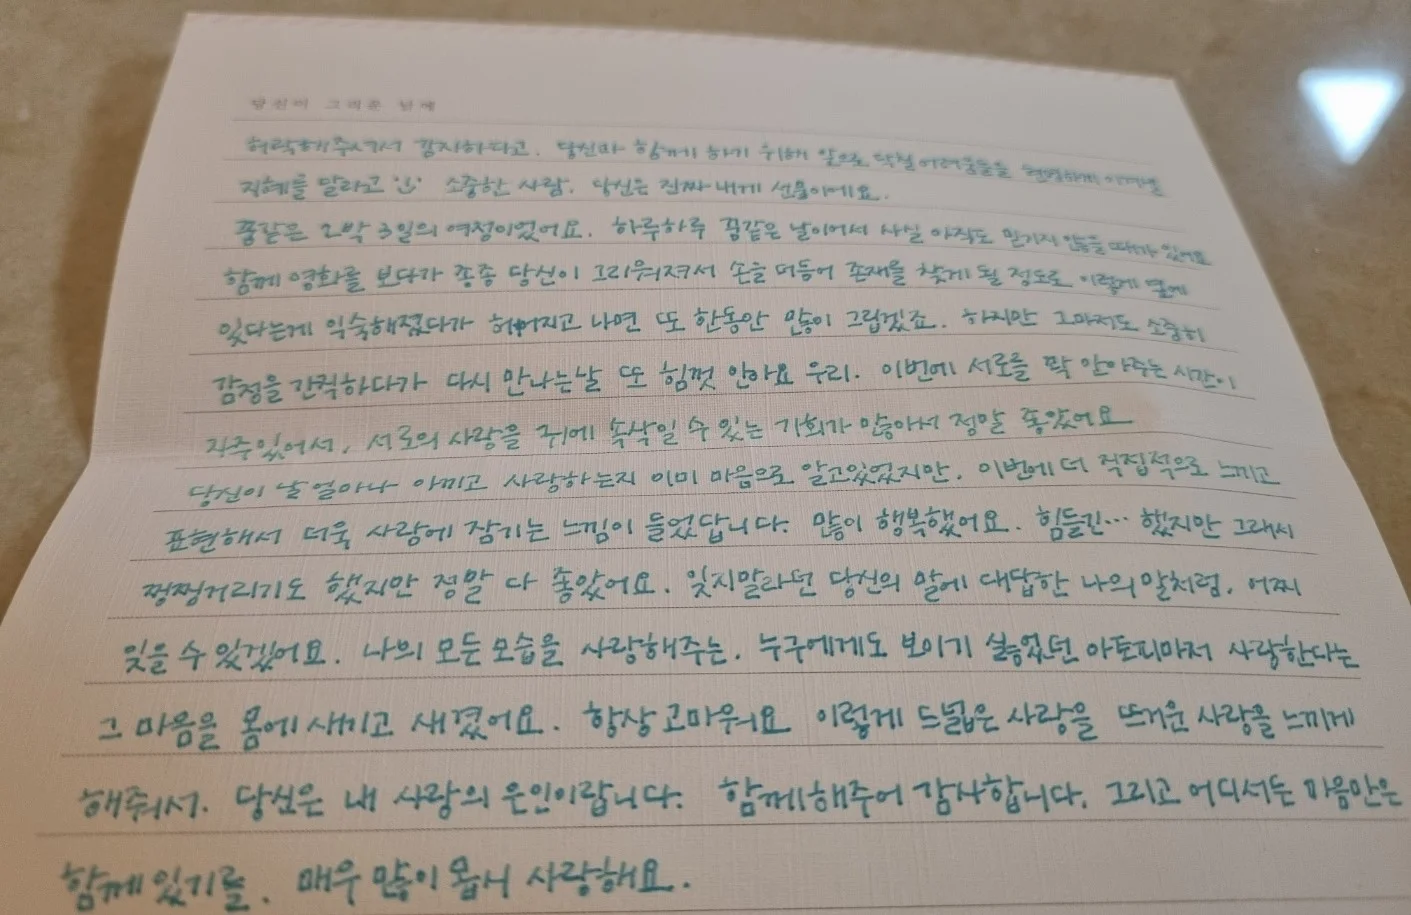 당신이 그리운 밤에
허락해주셔서 감사하다고. 당신과 함께 하기 위해 앞으로 닥칠 어려움들을 현명하게 이겨낼
지혜를 달라고 소중한 사람. 당신은 진짜 내게 선물이에요.
꿈같은 2박 3일의 여정이었어요. 하루하루 꿈같은 날이어서 사실 아직도 믿기지 않을 때가 있어요
함께 영화를 보다가 종종 당신이 그리워져서 손을 더듬어 존재를 찾게 될 정도로 이렇게 옆에
있다는게 익숙해졌다가 헤어지고 나면 또 한동안 많이 그립겠죠. 하지만 그마저도 소중히
감정을 간직하다가 다시 만나는날 또 힘껏 안아요 우리. 이번에 서로를 꽉 안아주는 시간이
자주있어서, 서로의 사랑을 귀에 속삭일 수 있는 기회가 많아서 정말 좋았어요
당신이 날 얼마나 아끼고 사랑하는지 이미 마음으로 알고있었지만, 이번에 더 직접적으로 느끼고
표현해서 더욱 사랑에 잠기는 느낌이 들었답니다. 많이 행복했어요. 힘들긴… 했지만 그래서
찡찡거리기도 했지만 정말 다 좋았어요. 잊지말라던 당신의 말에 대답한 나의 말처럼, 어찌
잊을 수 있겠어요. 나의 모든 모습을 사랑해주는, 누구에게도 보이기 싫었던 아토피마저 사랑한다는
그 마음을 몸에 새기고 새겼어요. 항상 고마워요 이렇게 드넓은 사랑을 뜨거운 사랑을 느끼게
해줘서. 당신은 내 사랑의 은인이랍니다. 함께해주어 감사합니다. 그리고 어디서든 마음만은
함께 있기를. 매우 많이 몹시 사랑해요.